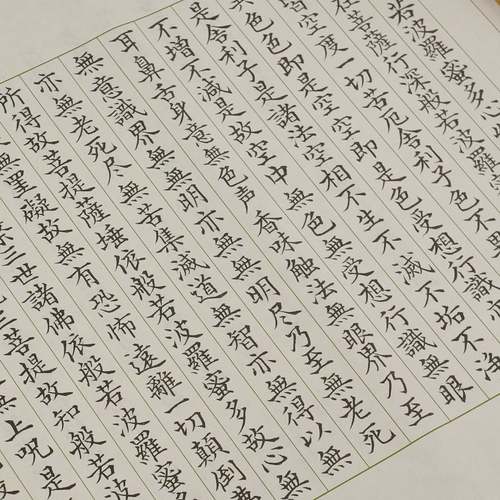 若波羅蜜多心
在菩薩行深般若波羅
皆空度一切苦厄舍利子色不
色色即是空空即是色受想行識
是舍利子是諸法空相不生不滅不垢不淨
不增不減是故空中無色無受想行識無眼
耳鼻舌身意無色声香味触法無眼界乃至
無意識界無無明亦無無明尽乃至無老死
亦無老死尽無苦集滅道無智亦無得以無
所得故菩提薩埵依般若波羅蜜多故心無
無罣礙故無有恐怖遠離一切顛倒
三世諸佛依般若波羅蜜多
三菩提故知般若波
無上呪是